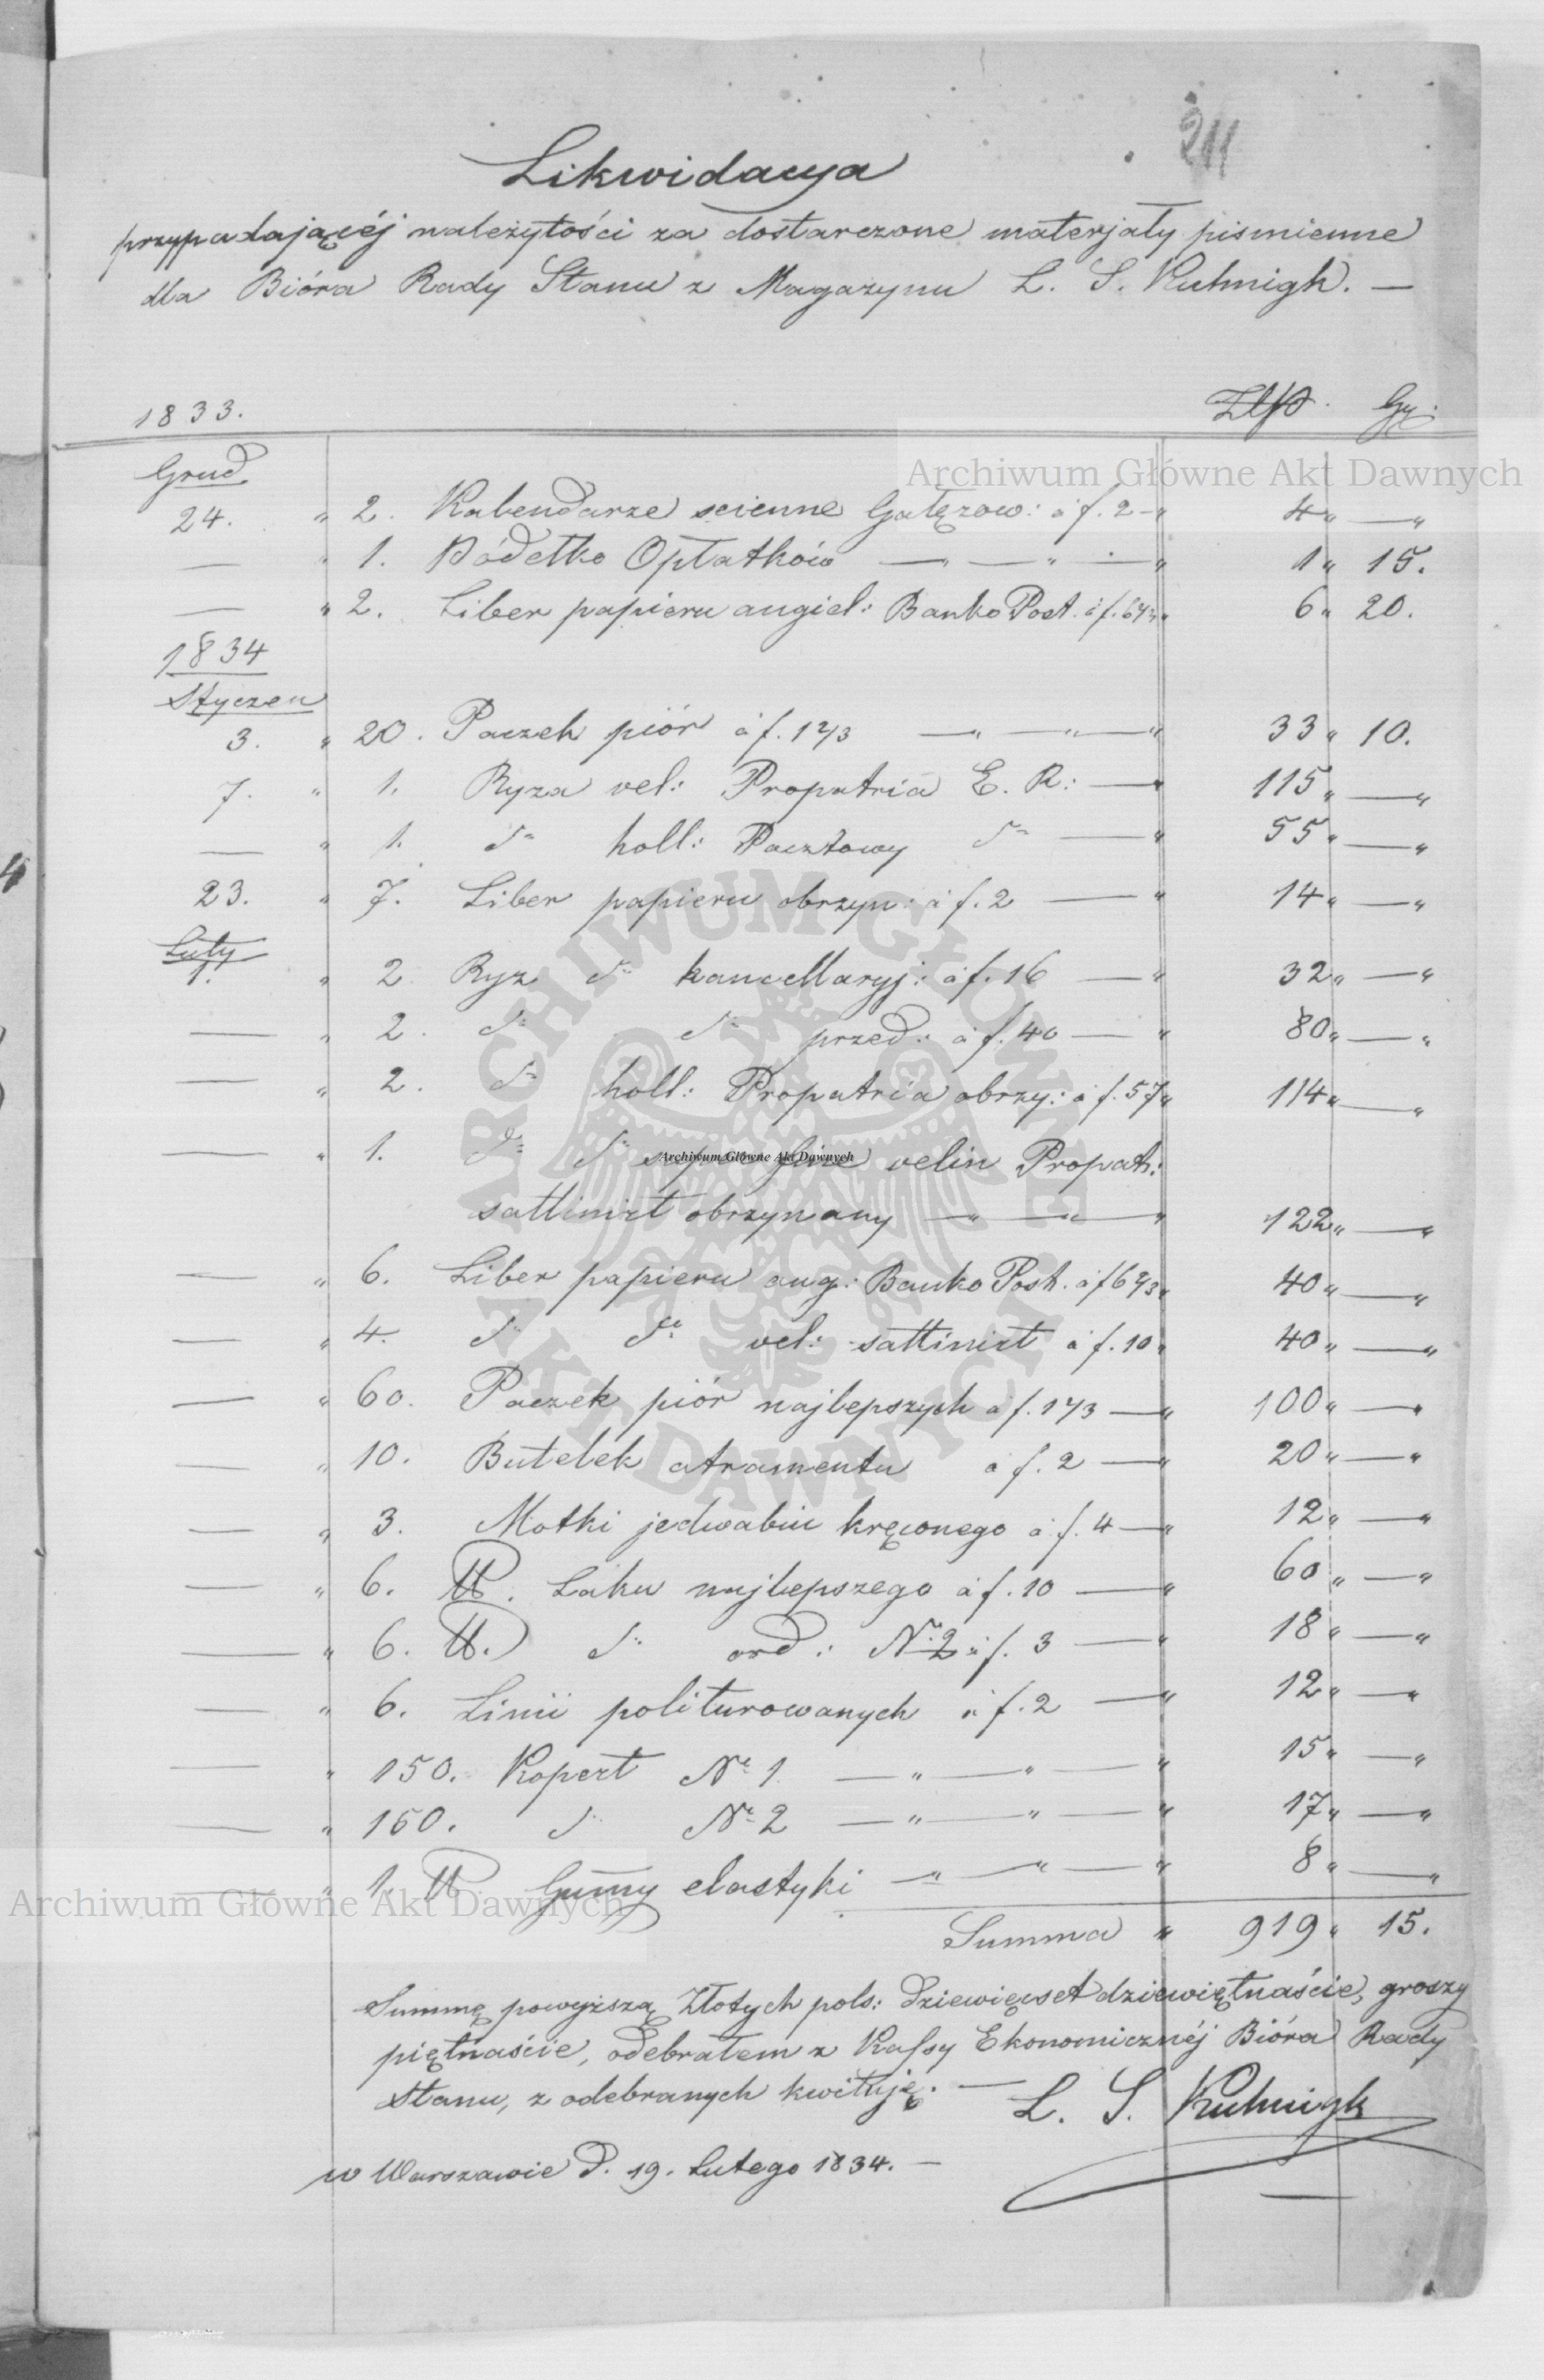 211
Likwidacya
przypadającéj należytości za dostarczone materjały pismienne
dla Bióra Rady Stanu z Magazynu L. S. Kuhnigk. —
1833. Złp. Gr.
Archiwum Główne Akt Dawnych
Grud.
24. " 2. Kalendarze scienne Gałęzow: à f. 2 — " 4 " — "
— " 1. Pódełko Opłatków — " — " — " 1 " 15.
— " 2. Liber papieru angiel: Banko Post. à f. 6 2/3 " 6 " 20.
1834
Styczen
3. " 20. Paczek piór à f. 1 2/3 — " — " — " 33 " 10.
7. " 1. Ryza vel: Propatria E. R: — " 115 " — "
— " 1. do holl: Pocztowy do — " 55 " — "
23. " 7. Liber papieru obrzyn: à f. 2 — " 14 " — "
Luty
1. " 2 Ryz do kancellaryj: à f. 16 — " 32 " — "
— " 2. do do przed: à f. 40 — " 80 " — "
— " 2. do holl: Propatria obrzy: à f. 57 " 114 " — "
— " 1. do do super fine velin Propatr:
satlinirt obrzynany — " — " — " 122 " — "
— " 6. Liber papieru ang: Banko Post. à f 6 2/3 " 40 " — "
— " 4. do do vel: satlinirt à f. 10 " 40 " — "
— " 60. Paczek piór najlepszych à f. 1 2/3 — " 100 " — "
— " 10. Butelek atramentu à f. 2 — " 20 " — "
— " 3. Motki jedwabiu kręconego à f. 4 — " 12 " — "
— " 6. ℔. Laku najlepszego à f. 10 — " 60 " — "
— " 6. ℔. do ord: No 2 à f. 3 — " 18 " — "
— " 6. Linii politurowanych à f. 2 — " 12 " — "
— " 150. Kopert No 1 — " — " — " 15 " — "
— " 150. do No 2 — " — " — " 17 " — "
— " 1. ℔ Gum̄y elastyki — " — " — " 8 " — "
Archiwum Główne Akt Dawnych
Summa " 919 " 15.
Summę powyższą Złotych pols: dziewięcset dziewiętnaście, groszy
piętnaście, odebrałem z Kassy Ekonomicznéj Bióra Rady
Stanu, z odebranych kwituję. —
L. S. Kuhnigk
w Warszawie d. 19. Lutego 1834. —
ARCHIWUM GŁÓWNE
AKT DAWNYCH
Archiwum Główne Akt Dawnych